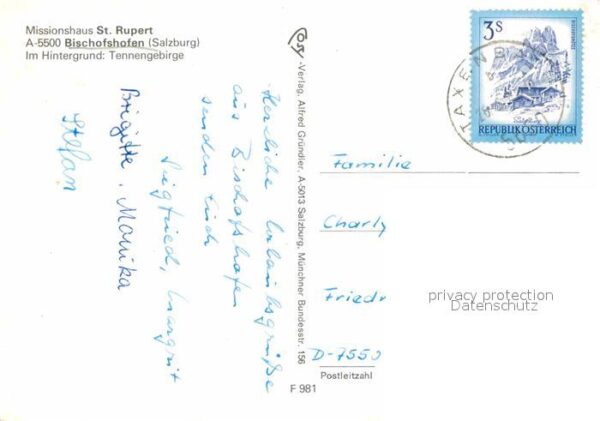 Missionshaus St. Rupert
A-5500 Bischofshofen (Salzburg)
Im Hintergrund: Tennengebirge
Herzliche Urlaubsgrüße
aus Bischofshofen
senden Euch
Siegfried, Margrit
Brigitte, Monika
Stefan
-Verlag, Alfred Gründler, A-5013 Salzburg, Münchner Bundesstr. 156
F 981
3S
REPUBLIK ÖSTERREICH
TAXENB
Familie
Charly
Friedr
D-7550
Postleitzahl
privacy protection
Datenschutz